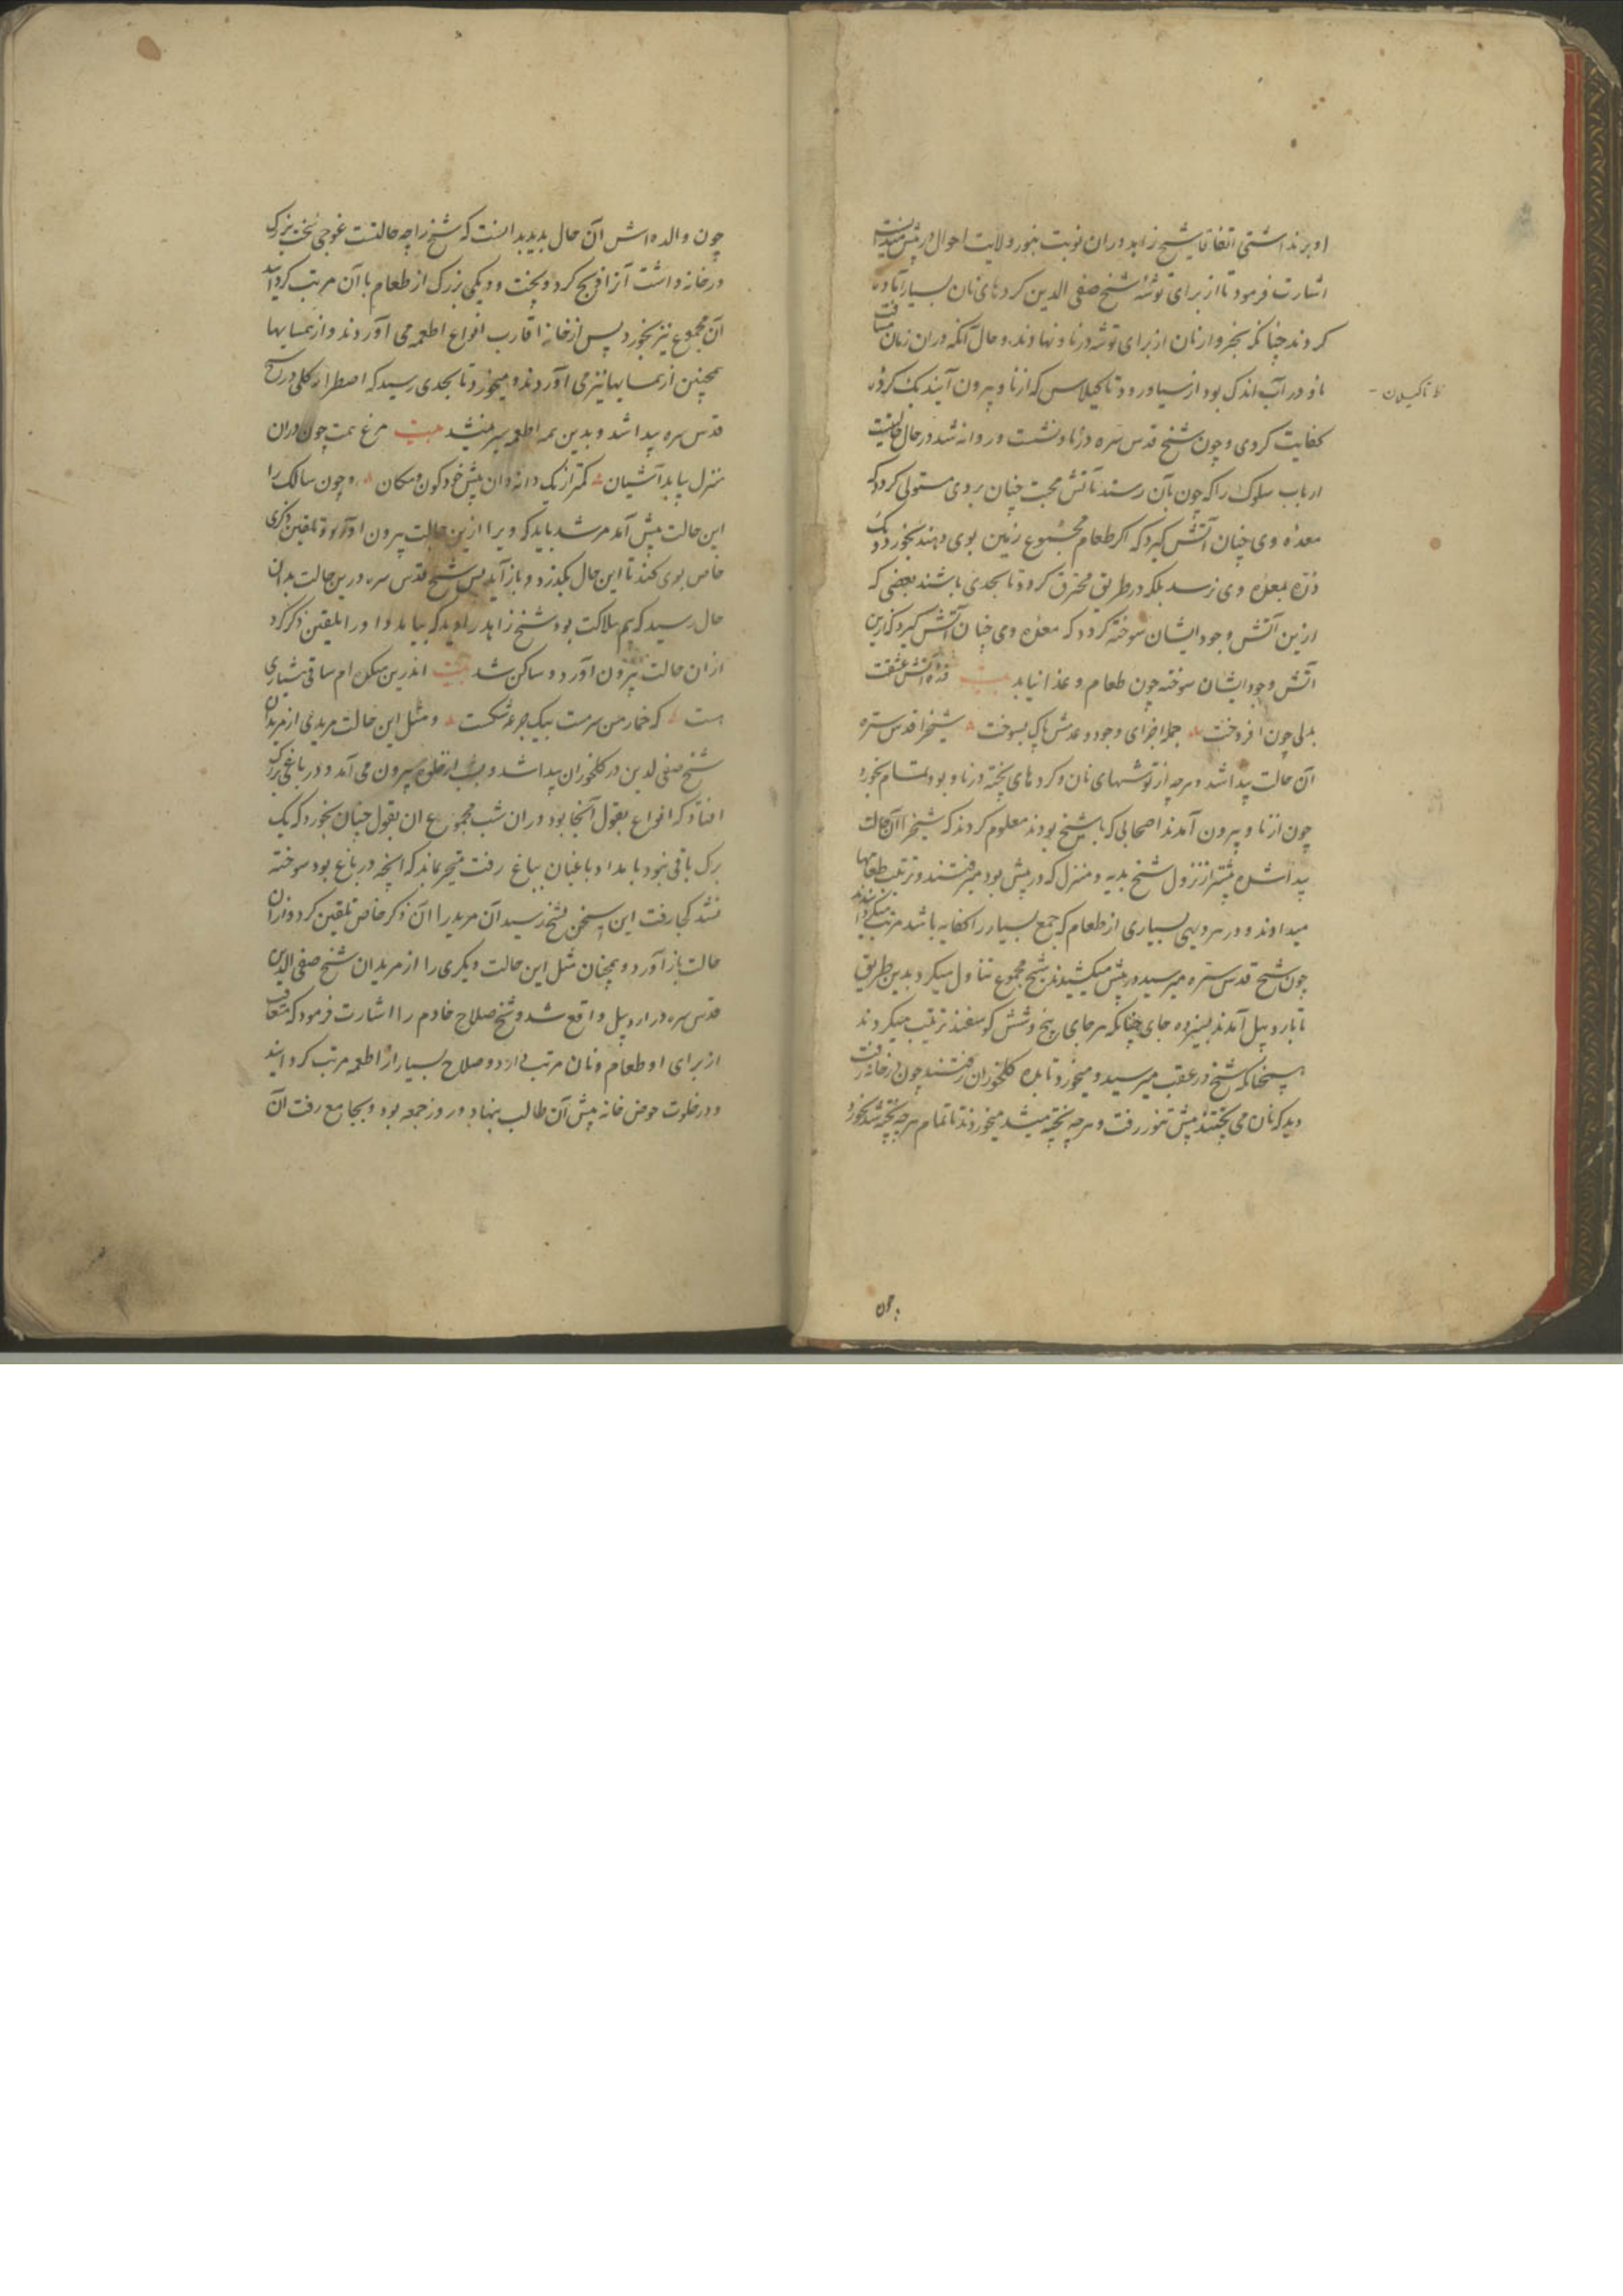 او برنداشتی اتفاقا شیخ زاهد دران نوبت بنور ولایت احوال در پیش میدانست
اشارت فرمود تا از برای توشهٔ شیخ صفی الدین کردهای نان بسیار آماده
کردند چنانکه بخروار نان از برای توشه در ناو نهادند و حال آنکه دران زمان مسافت
ناو در آب اندک بود از سیاورود تا کیلاس که از ناو بیرون آیند یک کرده
کفایت کردی و چون شیخ قدس سره در ناو نشست و روانه شد در حال حالیست
ارباب سلوک را که چون بآن رسند آتش محبت چنان بر وی مستولی کردد که
معدهٔ وی چنان آتش کیرد که اکر طعام مجموع زمین بوی دهند بخورد و یک
ذره بمعدهٔ وی نرسد بلکه در طریق محترق کردد تا بحدی باشند بعضی که
ازین آتش وجود ایشان سوخته کردد که معدهٔ وی چنان آتش کیرد کزین
آتش وجود ایشان سوخته چون طعام و غذا نیابد بیت ذرهٔ آتش عشقت
بدلی چون افروخت جمله اجزای وجود و عدمش پاک بسوخت شیخ را قدس سره
آن حالت پیدا شد و هرچه از توشهای نان و کردهای پخته در ناو بود تمام بخورد
چون از ناو بیرون آمدند اصحابی که با شیخ بودند معلوم کردند که شیخ را آن حالت
پیدا شده پیشتر از نزول شیخ بدیه و منزل که در پیش بود میرفتند و ترتیب طعامها
میدادند و در هر دیهی بسیاری از طعام که جمع بسیار را کفایه باشد مرتب میکردانیدند
چون شیخ قدس سره میرسید در پیش میکشیدند شیخ مجموع تناول میکرد بدین طریق
تا باردبیل آمدند بسیزده جای چنانکه هر جای پنج و شش کوسفند ترتیب میکردند
همچنانکه شیخ در عقب میرسید و میخورد تا بده کلخوران رفتند چون در خانه رفت
دید که نان می پختند پیش تنور رفت و هرچه پخته میشد میخوردند تا تمام هرچه پخته شد بخورد
چون
چون والده اش آن حال بدید بدانست که شیخ را چه حالتست غوجی سخت بزرک
در خانه داشت آنرا ذبح کرد و بپخت و دیکی بزرک از طعام با آن مرتب کردانید
آن مجموع نیز بخورد پس از خانهٔ اقارب انواع اطعمه می آوردند و از همسایها
همچنین از همسایها نیز می آوردند و میخورد تا بحدی رسید که اضطرار کلی در شیخ
قدس سره پیدا شد و بدین همه اطعمه سیر نمیشد بیت مرغ همت چون دران
منزل بیابد آشیان کمتر از یک دانه دان پیش خود کون و مکان و چون سالک را
این حالت پیش آمد مرشد باید که ویرا ازین حالت بیرون آورد و تلقین ذکری
خاص بوی کند تا این حال بکذرد و باز آید پس شیخ قدس سره درین حالت بدان
حال رسید که بیم هلاکت بود شیخ زاهد را دید که بیامد و او را تلقین ذکر کرد
ازان حالت بیرون آورد و ساکن شد بیت اندرین میکده ام ساقی هشیاری
هست که خمار من سرمست بیک جرعه شکست و مثل این حالت مریدی از مریدان
شیخ صفی الدین در کلخوران پیدا شد و شب از خلوه بیرون می آمد و در باغی بزرک
افتاد که انواع بقول آنجا بود دران شب مجموع آن بقول چنان بخورد که یک
برک باقی نبود بامداد باغبان بباغ رفت متحیر بماند که آنچه در باغ بود سوخته
نشد کجا رفت این سخن بشیخ رسید آن مرید را آن ذکر خاص تلقین کرد و ازان
حالت باز آورد و همچنان مثل این حالت دیکری را از مریدان شیخ صفی الدین
قدس سره در اردبیل واقع شد و شیخ صلاح خادم را اشارت فرمود که متعاقب
از برای او طعام و نان مرتب دارد و صلاح بسیار از اطعمه مرتب کردانید
و در خلوت حوض خانه پیش آن طالب بنهاد و روز جمعه بود و بجامع رفت آن